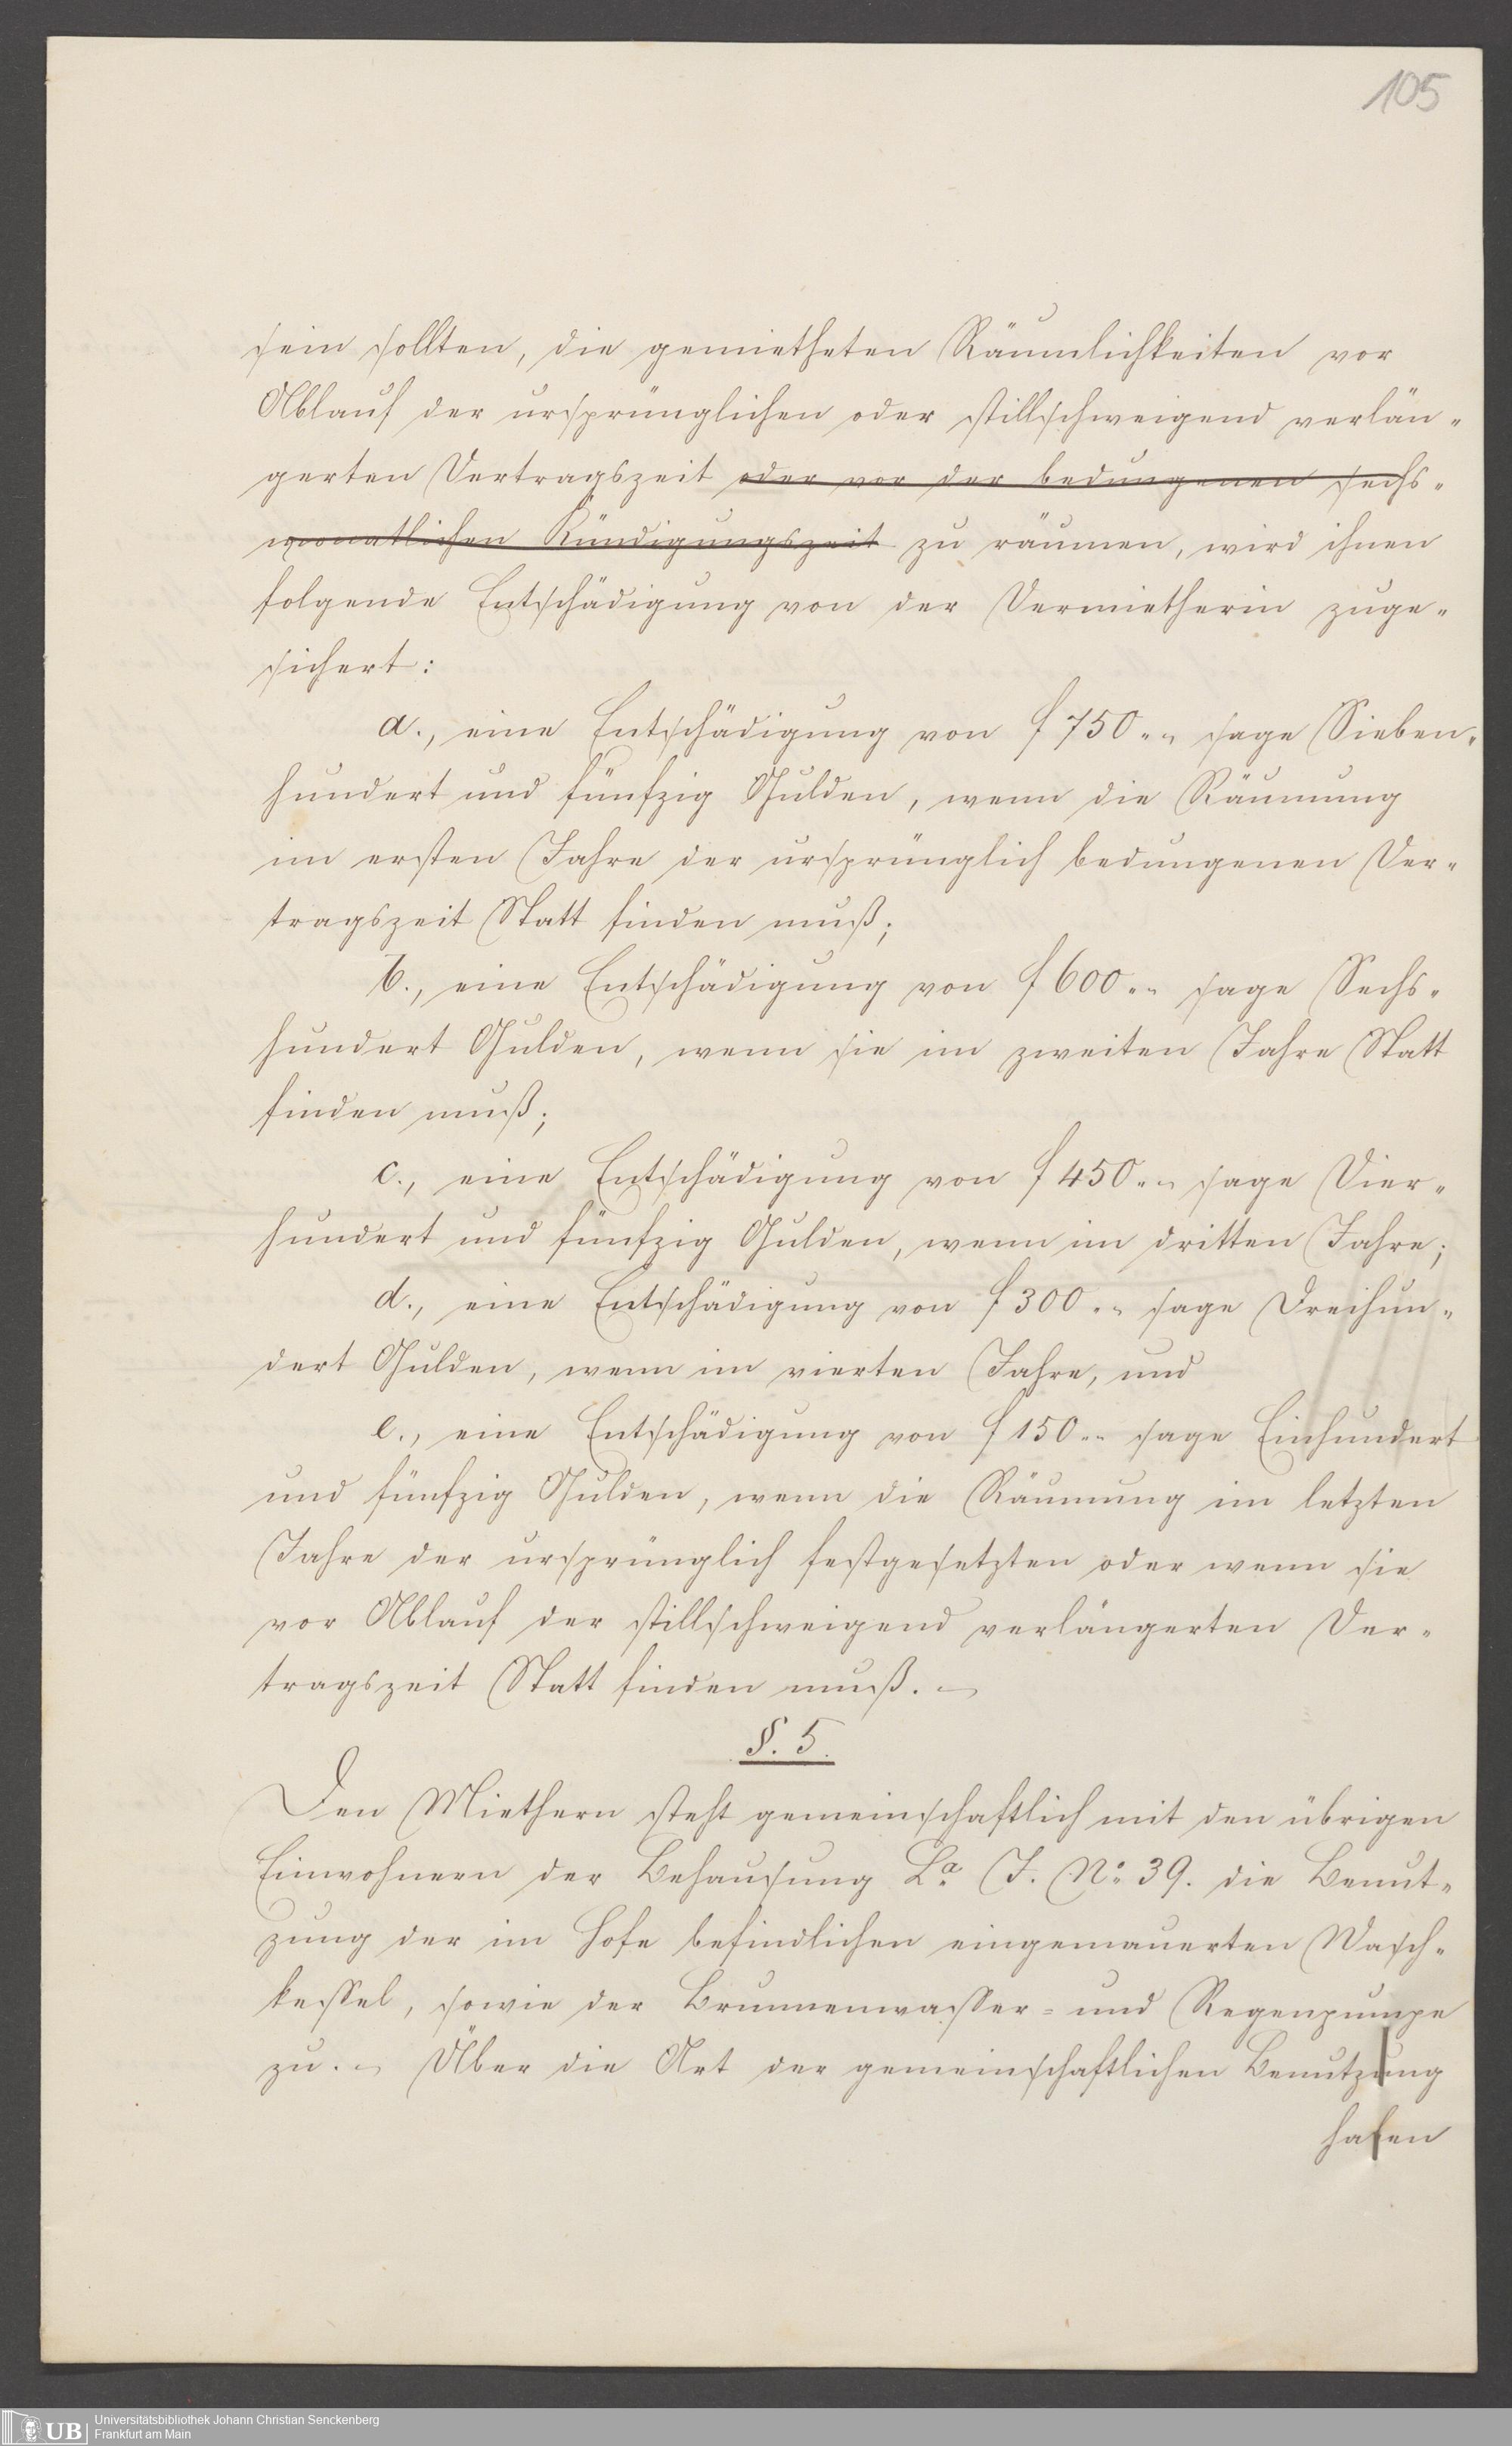 105
sein sollten, die gemietheten Räumlichkeiten vor
Ablauf der ursprünglichen oder stillschweigend verlän-
gerten Vertragszeit oder vor der bedungenen sechs-
monatlichen Kündigungszeit zu räumen, wird ihnen
folgende Entschädigung von der Vermietherin zuge-
sichert:
a., eine Entschädigung von f 750.-- sage Sieben-
hundert und fünfzig Gulden, wenn die Räumung
im ersten Jahre der ursprünglich bedungenen Ver-
tragszeit Statt finden muß;
b., eine Entschädigung von f 600.-- sage Sechs-
hundert Gulden, wenn sie im zweiten Jahre Statt
finden muß;
c., eine Entschädigung von f 450.-- sage Vier-
hundert und fünfzig Gulden, wenn im dritten Jahre;
d., eine Entschädigung von f 300.-- sage Dreihun-
dert Gulden, wenn im vierten Jahre, und
e., eine Entschädigung von f 150.-- sage Einhundert
und fünfzig Gulden, wenn die Räumung im letzten
Jahre der ursprünglich festgesetzten oder wenn sie
vor Ablauf der stillschweigend verlängerten Ver-
tragszeit Statt finden muß. –
§. 5.
Den Miethern steht gemeinschaftlich mit den übrigen
Einwohnern der Behausung La. J. No. 39. die Benut-
zung der im Hofe befindlichen eingemauerten Wasch-
kessel, sowie der Brunnenwasser- und Regenpumpe
zu. – Über die Art der gemeinschaftlichen Benutzung
haben
UB
Universitätsbibliothek Johann Christian Senckenberg
Frankfurt am Main